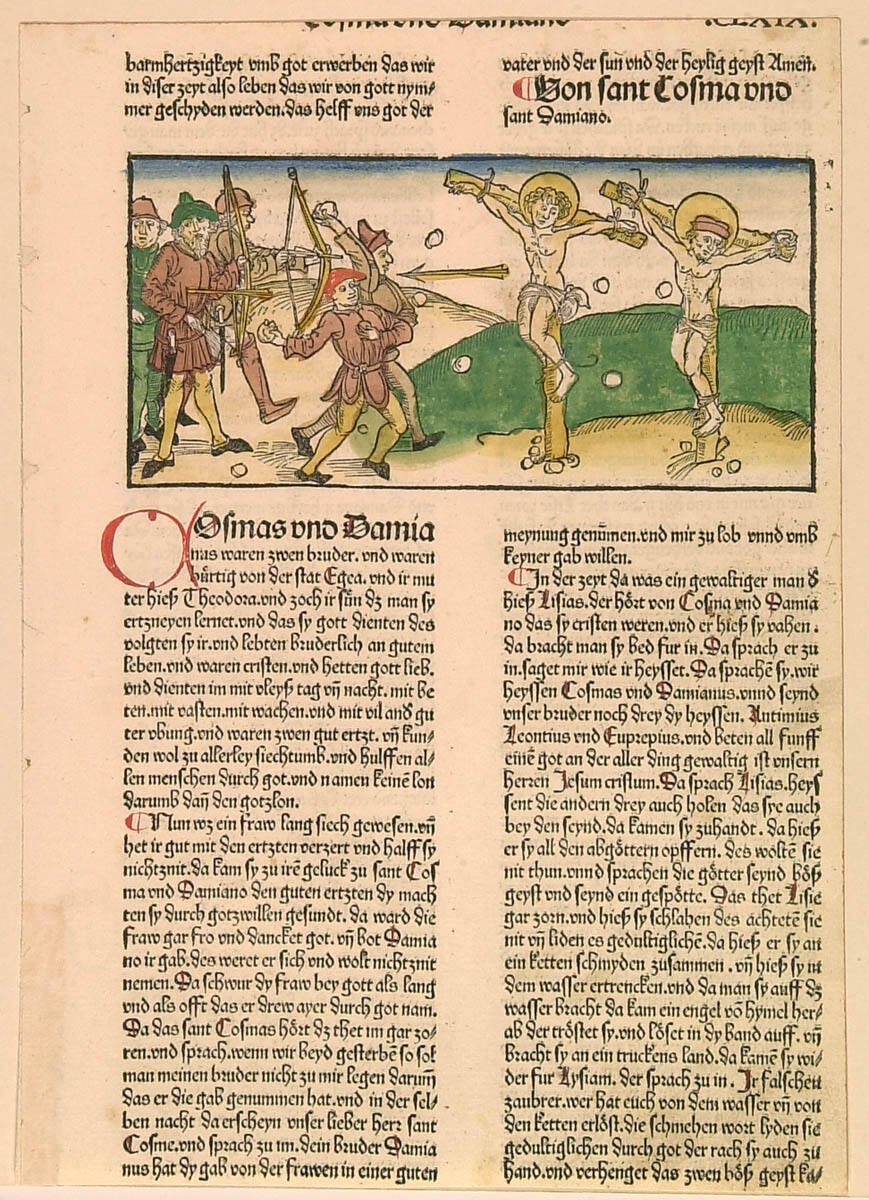 Cosma vnd Damiano
.CLXIX.
barmhertzigkeyt vmb got erwerben das wir
in diser zeyt also leben das wir von gott nym⸗
mer geschyden werden.das helff vns got der
vater vnd der sun̄ vnd der heylig geyst Amen̄.
¶Von sant Cosma vnd
sant Damiano.
COsmas vnd Damia
nus waren zwen bruder. vnd waren
bürtig von der stat Egea. vnd ir mu
ter hieß Theodora.vnd zoch ir sün dz man sy
ertzneyen lernet.vnd das sy gott dienten des
volgten sy ir.vnd lebten bruderlich an gutem
leben.vnd waren cristen.vnd hetten gott lieb.
vnd dienten im mit vleyß tag vn̄ nacht. mit be
ten.mit vasten.mit wachen.vnd mit vil and̄ gu
ter vbung.vnd waren zwen gut ertzt. vn̄ kun⸗
den wol zu allerley siechtumb.vnd hulffen al⸗
len menschen durch got.vnd namen keinē lon
darumb dan̄ den gotzlon.
¶Nun wz ein fraw lang siech gewesen.vn̄
het ir gut mit den ertzten verzert vnd halff sy
nichtznit.da kam sy zu irē geluck zu sant Cos
ma vnd Damiano den guten ertzten dy mach
ten sy durch gotzwillen gesundt. da ward die
fraw gar fro vnd dancket got. vn̄ bot Damia
no ir gab.des weret er sich vnd wolt nichtznit
nemen. Da schwur dy fraw bey gott als lang
vnd als offt das er drew ayer durch got nam.
Da das sant Cosmas hört dz thet im gar zo⸗
ren.vnd sprach.wenn wir beyd gesterbē so sol
man meinen bruder nicht zu mir legen darum̄
das er die gab genummen hat.vnd in der sel⸗
ben nacht da erscheyn vnser lieber herr sant
Cosme.vnd sprach zu im.dein bruder Damia
nus hat dy gab von der frawen in einer guten
meynung genūmen.vnd mir zu lob vnnd vmb
keyner gab willen.
¶In der zeyt da was ein gewaltiger man d̄
hieß Lisias.der hört von Cosma vnd Damia
no das sy cristen weren.vnd er hieß sy vahen.
da bracht man sy bed fur in. Da sprach er zu
in.saget mir wie ir heysset. Da sprachē sy.wir
heyssen Cosmas vnd Damianus.vnnd seynd
vnser bruder noch drey dy heyssen. Antimius
Leontius vnd Euprepius.vnd beten all funff
einē got an der aller ding gewaltig ist vnsern
herren Jesum cristum. Da sprach Lisias.heys
sent die andern drey auch holen das sye auch
bey den seynd.da kamen sy zuhandt. da hieß
er sy all den abgöttern opffern. des woltē sie
nit thun.vnnd sprachen die götter seynd böß
geyst vnd seynd ein gespötte. Das thet Lisie
gar zorn.vnd hieß sy schlahen des achtetē sie
nit vn̄ liden es gedultiglichē.da hieß er sy an
ein ketten schmyden zusammen. vn̄ hieß sy in
dem wasser ertrencken.vnd da man sy auff dz
wasser bracht da kam ein engel vō hymel her⸗
ab der tröstet sy.vnd löset in dy band auff. vn̄
bracht sy an ein truckens land.da kamē sy wi⸗
der fur Lysiam. der sprach zu in. Ir falschen
zaubrer.wer hat euch von dem wasser vn̄ von
den ketten erlöst.die schmehen wort lyden sie
gedultiglichen durch got der rach sy auch zu
hand.vnd verhenget das zwen böß geyst ka⸗